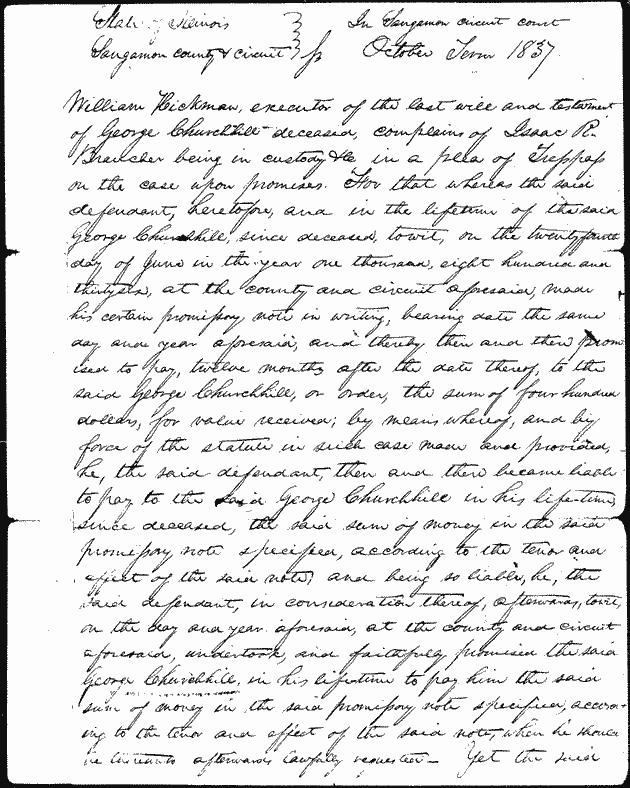 State of Illinois In Sangamon circuit court
Sangamon county & circuit } ss October Term 1837
William Hickman, executor of the last will and testament
of George Churchhill deceased, complains of Isaac R.
Braucher being in custody &c in a plea of Trespass
on the case upon promises. For that whereas the said
defendant, heretofore, and in the lifetime of the said
George Churchhill, since deceased, towit, on the twentyfourth
day of June in the year one thousand, eight hundred and
thirtysix, at the county and circuit aforesaid, made
his certain promissory note in writing, bearing date the same
day and year aforesaid, and thereby then and there prom
ised to pay, twelve months after the date thereof, to the
said George Churchhill, or order, the sum of four hundred
dollars, for value received; by means whereof, and by
force of the statute in such case made and provided,
he, the said defendant, then and there became liable
to pay to the said George Churchhill in his lifetime,
since deceased, the said sum of money in the said
promissory note specified, according to the tenor and
effect of the said note; and being so liable, he, the
said defendant, in consideration thereof, afterwards, towit,
on the day and year aforesaid, at the county and circuit
aforesaid, undertook, and faithfully promised the said
George Churchhill, in his lifetime to pay him the said
sum of money in the said promissory note specified, accord-
ing to the tenor and effect of the said note, when he should
be thereunto afterwards lawfully requested— Yet the said